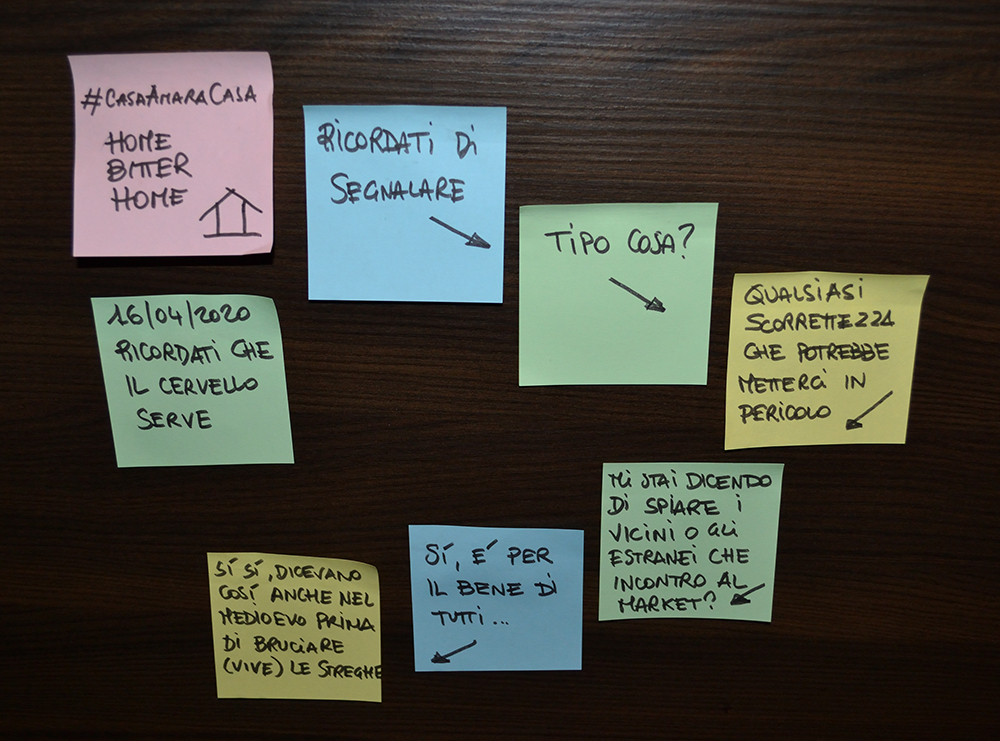 #CASAAMARACASA
HOME
BITTER
HOME
16/04/2020
RICORDATI CHE
IL CERVELLO
SERVE
RICORDATI DI
SEGNALARE
TIPO COSA?
QUALSIASI
SCORRETTEZZA
CHE POTREBBE
METTERCI IN
PERICOLO
MI STAI DICENDO
DI SPIARE I
VICINI O GLI
ESTRANEI CHE
INCONTRO AL
MARKET?
SÍ, É PER
IL BENE DI
TUTTI...
SÍ SÍ, DICEVANO
COSÍ ANCHE NEL
MEDIOEVO PRIMA
DI BRUCIARE
(VIVE) LE STREGHE